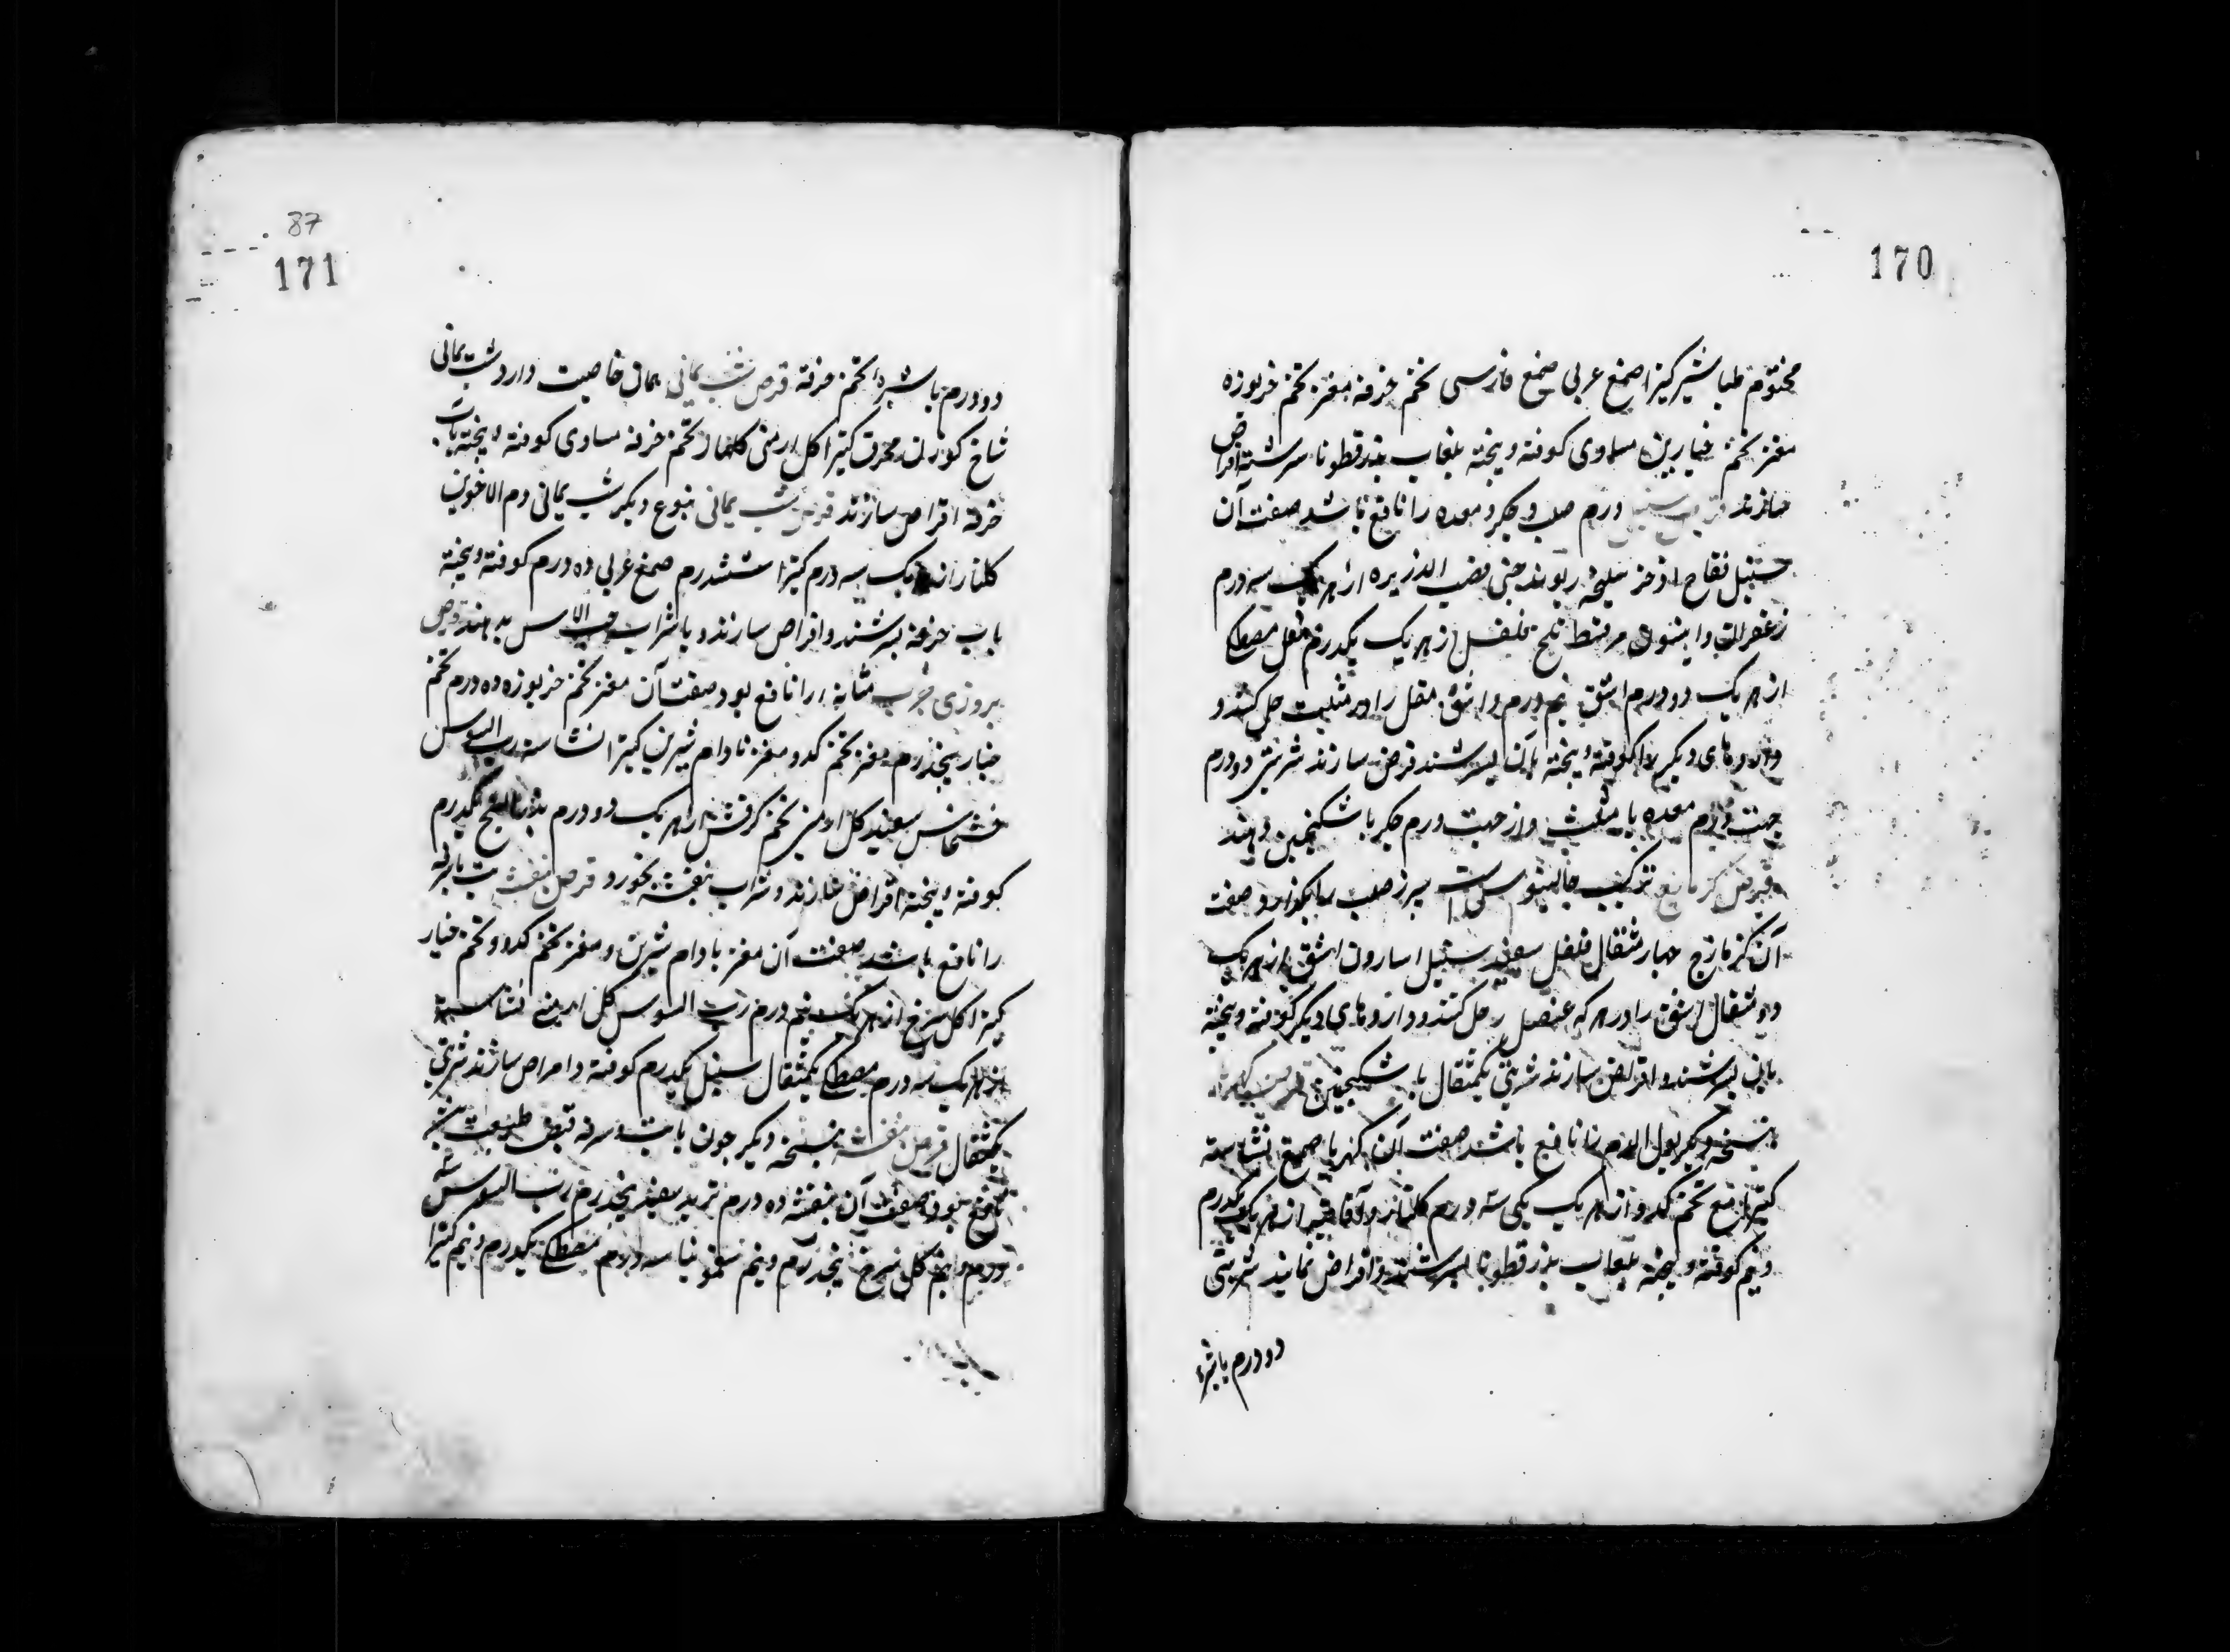 170
مختوم طباشیر کتیرا صمغ عربی صمغ فارسی تخم خرفه مغز تخم خربوزه
مغز تخم خیارین مساوی کوفته و بیخته بلعاب بذرقطونا سرشته اقراص
سازند قرص سنبل ورم صلب و جکر و معده را نافع باشد صفت آن
سنبل فقاح اذخر سلیخه ریوند چینی قصب الذریره از هر یک سه درم
زعفران و انیسون مر قسط تلخ فلفل از هر یک یکدرم مقل مصطکی
از هر یک دو درم اشق نیم درم و اشق مقل را در مثلث حل کنند و
داروهای دیکر را کوفته و بیخته بآن بسرشند قرص سازند شربتی دو درم
جهت ورم معده با مثلث و از جهت ورم جکر با سکنجبین دهند
قرص کزمازج ترکیب جالینوس است سپرز صلب را بکدازد و صفت
آن کزمازج چهار مثقال فلفل سفید سنبل اسارون اشق از هر یک
دو مثقال اشق را در سرکه عنصل حل کنند و داروهای دیکر کوفته و بیخته
بان بسرشند و اقراص سازند شربتی یکمثقال با سکنجبین قرص کهربا
بنسخه دیکر بول الدم را نافع باشد صفت آن کهربا صمغ نشاسته
کتیرا مغز تخم کدو از هر یک یکی سه درم کلنار و اقاقیا از هر یک یکدرم
و نیم کوفته و بیخته بلعاب بذرقطونا بسرشند و اقراص نمایند شربتی
دو درم باشیره
87
171
دو درم باشیره تخم خرفه قرص شب یمانی همان خاصیت دارد شب یمانی
شاخ کوزن محرق کتیرا کل ارمنی کلنار تخم خرفه مساوی کوفته و بیخته بآب
خرفه اقراص سازند قرص شب یمانی بنوع دیکر شب یمانی دم الاخوین
کلنار از هر یک سه درم کتیرا ششدرم صمغ عربی ده درم کوفته و بیخته
بآب خرفه بسرشند و اقراص سازند و با شراب حب الاس بدهند قرص
بروزی جرب مثانه را نافع بود صفت آن مغز تخم خربوزه ده درم تخم
خیار پنجدرم مغز تخم کدو مغز بادام شیرین کتیرا نشاسته رب السوس
خشخاش سفید کل ارمنی تخم کرفس از هر یک دو درم بذرالبنج یکدرم
کوفته و بیخته اقراص سازند و شراب بنفشه بخورد قرص بنفشه
را نافع باشد صفت آن مغز بادام شیرین و مغز تخم کدو و تخم خیار
کتیرا کل سرخ از هر یک پنج درم رب السوس کل ارمنی نشاسته
از هر یک سه درم مصطکی یکمثقال سنبل یکدرم کوفته و اقراص سازند شربتی
یکمثقال قرص بنفشه بنسخه دیکر چون با تب و سرفه قبض طبیعت
نافع بود صفت آن بنفشه ده درم تربد سفید پنجدرم رب السوس سه
درم و نیم کل سرخ پنجدرم و نیم سقمونیا سه درم مصطکی یکدرم و نیم کتیرا